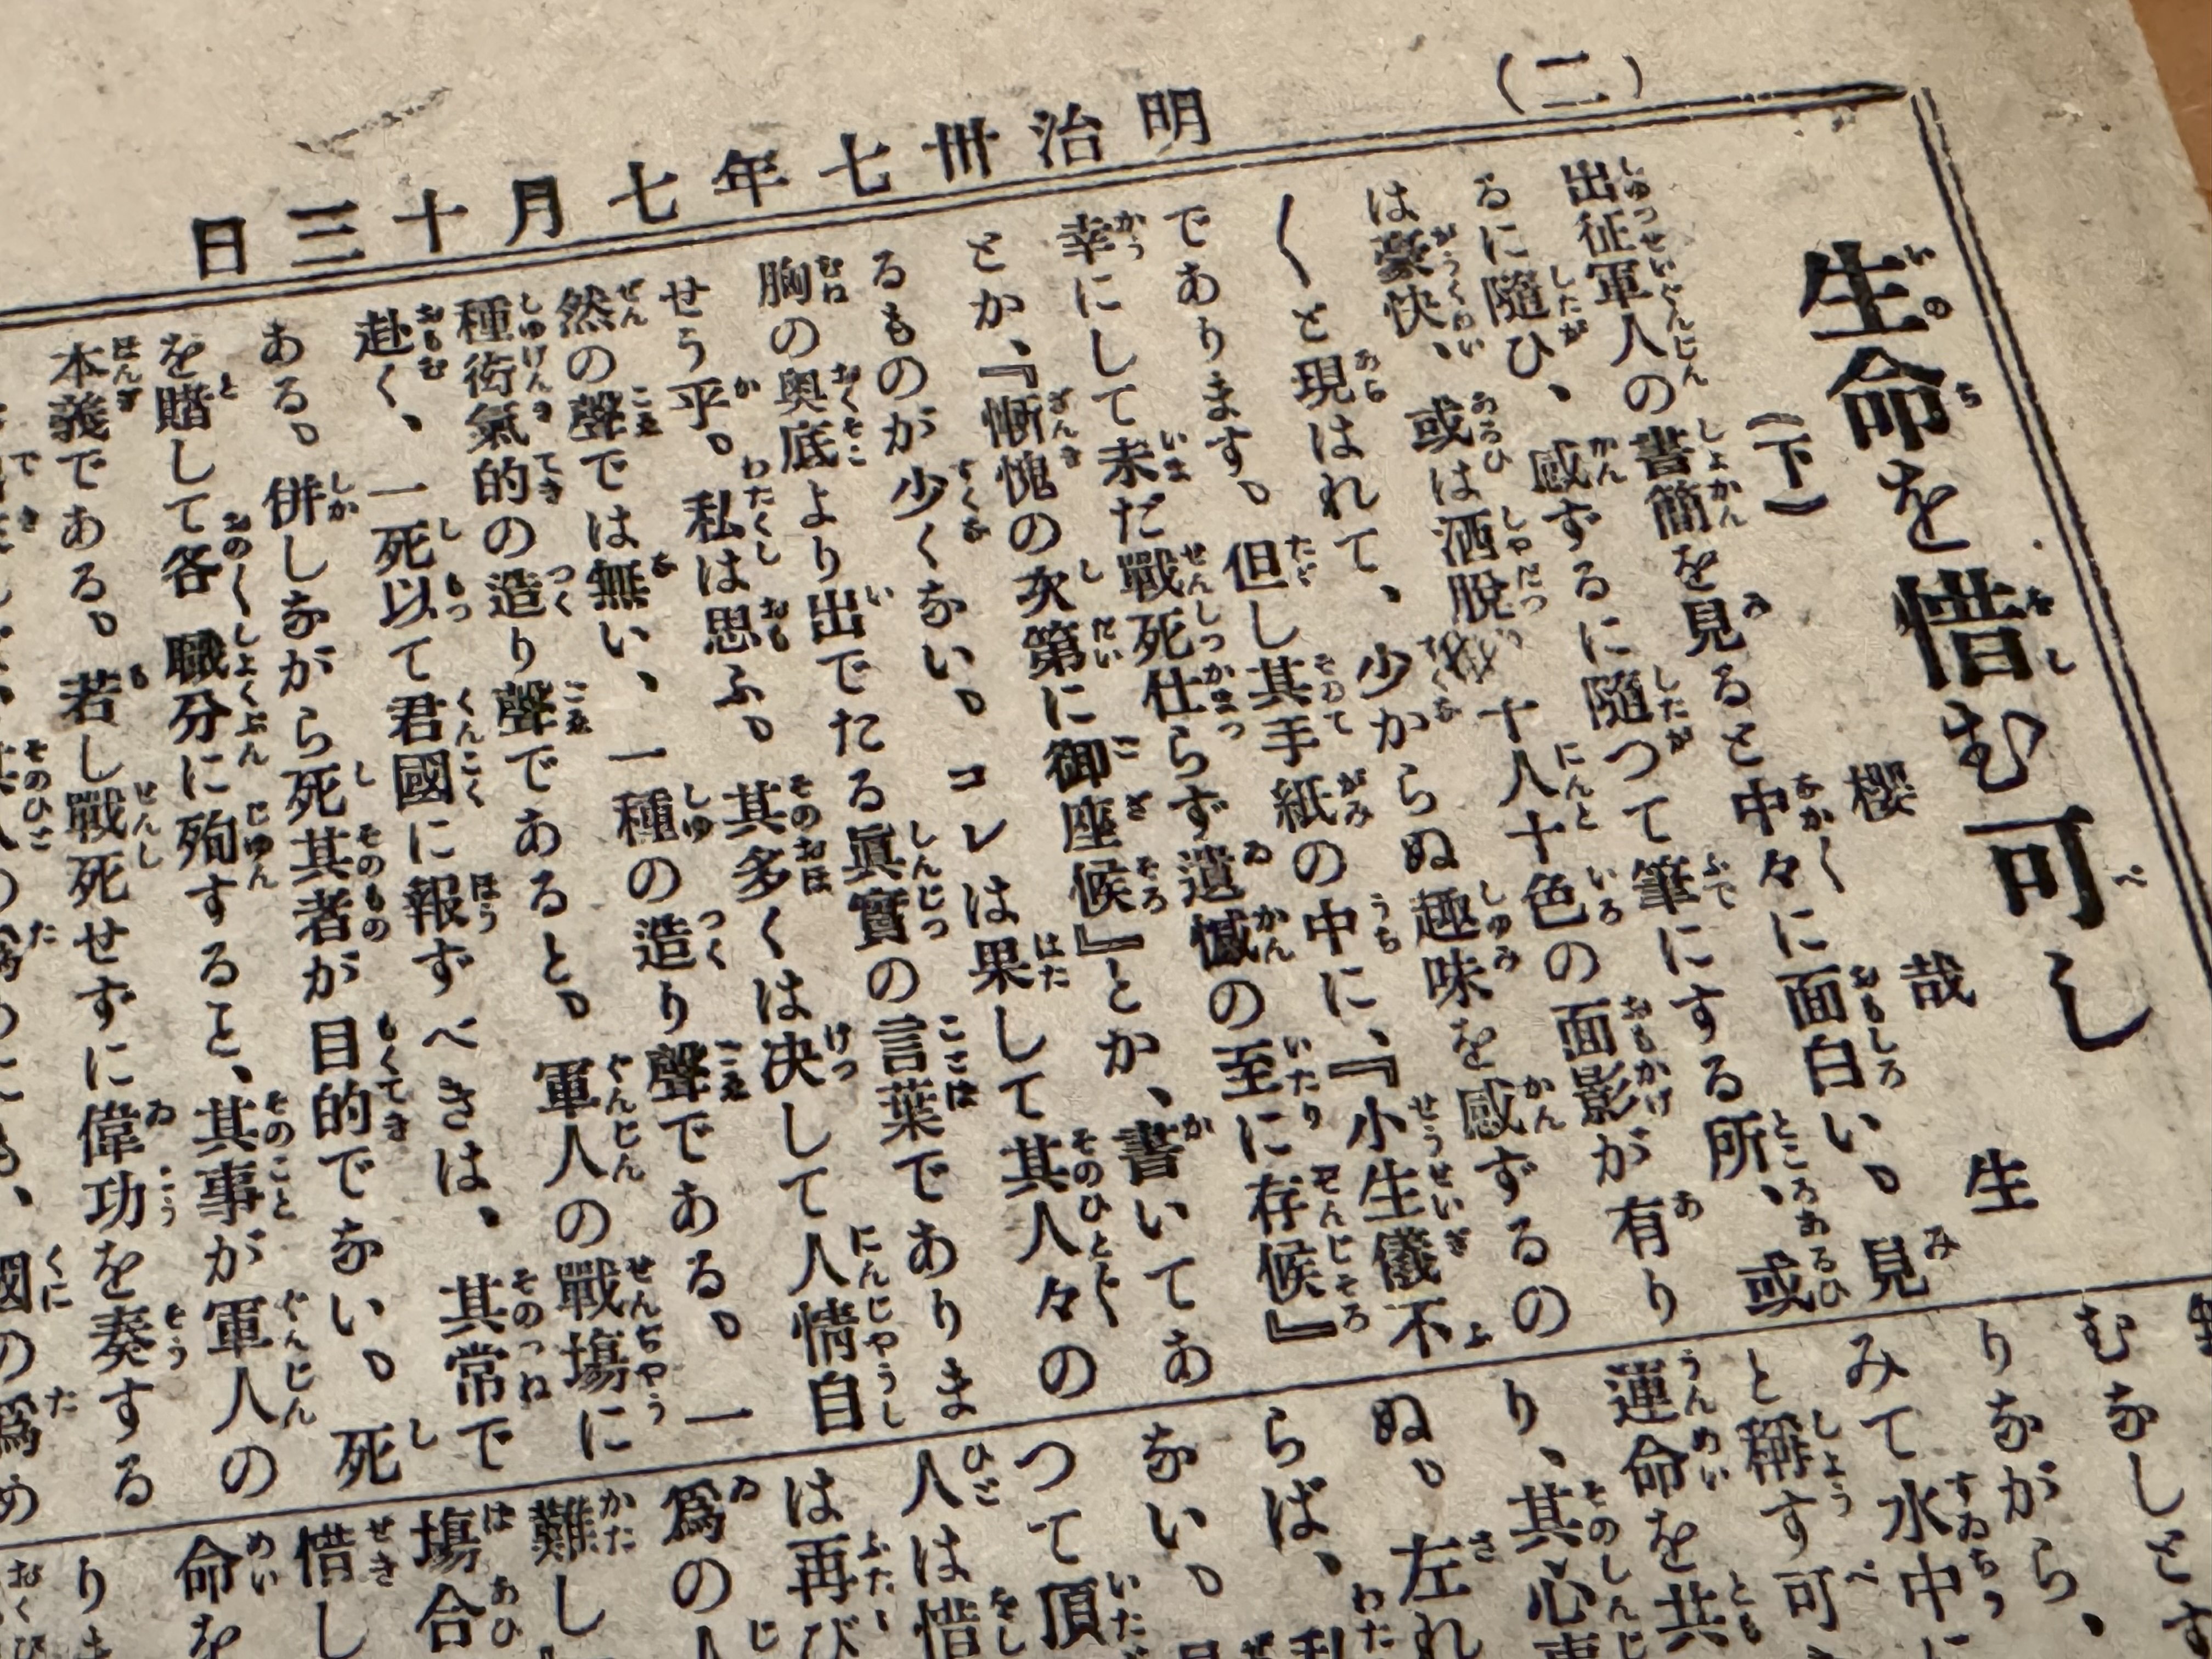 (二)
明治卅七年七月十三日
生命を惜む可し
(下)
櫻哉生
出征軍人の書簡を見ると中々に面白い。見
るに隨ひ、感ずるに隨つて筆にする所、或
は豪快、或は洒脫 十人十色の面影が有り
〱と現はれて、少からぬ趣味を感ずるの
であります。但し其手紙の中に、『小生儀不
幸にして未だ戰死仕らず遺憾の至に存候』
とか、『慚愧の次第に御座候』とか、書いてあ
るものが少くない。コレは果して其人々の
胸の奥底より出でたる眞實の言葉でありま
せう乎。私は思ふ。其多くは决して人情自
然の聲では無い、一種の造り聲である。一
種衒氣的の造り聲であると。軍人の戰塲に
赴く、一死以て君國に報ずべきは、其常で
ある。併しながら死其者が目的でない。死
を賭して各職分に殉すること、其事が軍人の
本義である。若し戰死せずに偉功を奏する
國の爲め
むなしとす
りながら、
みて水中に
と稱す可
運命を共
り、其心事
ぬ。左れ
らば、
ない。
つて頂
人は惜
は再び
爲の
難し
塲合
惜し
命を
りま